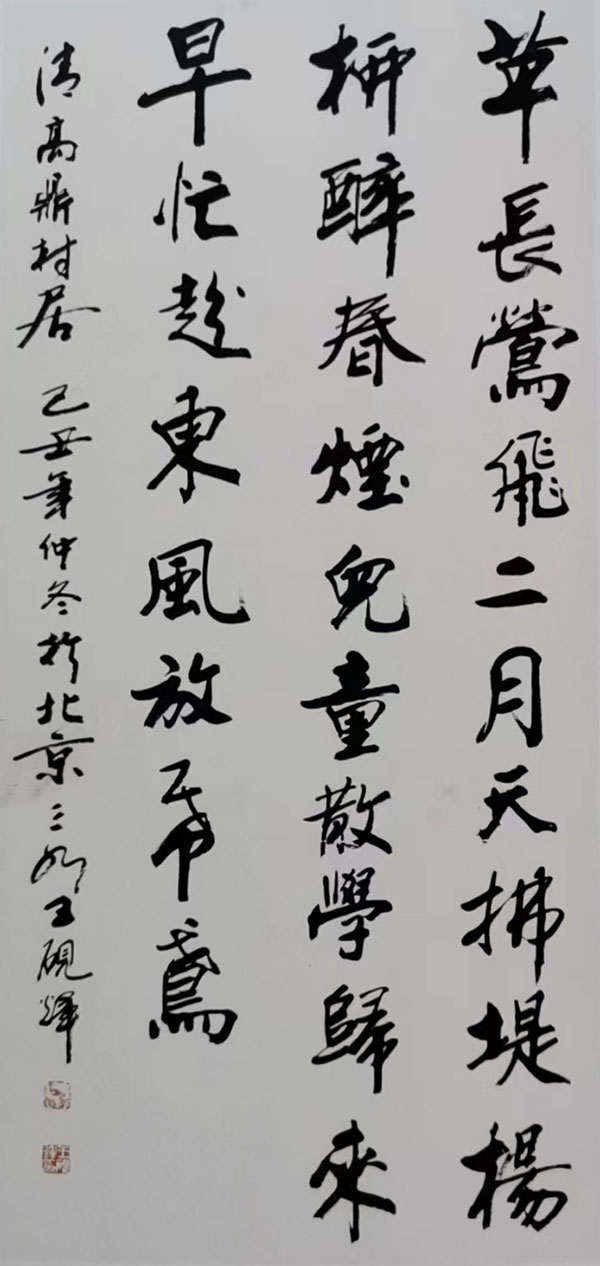 草長鶯飛二月天拂堤楊
柳醉春煙兒童散學歸來
早忙趁東風放紙鳶
清高鼎村居 己丑年仲冬於北京三知王砚輝